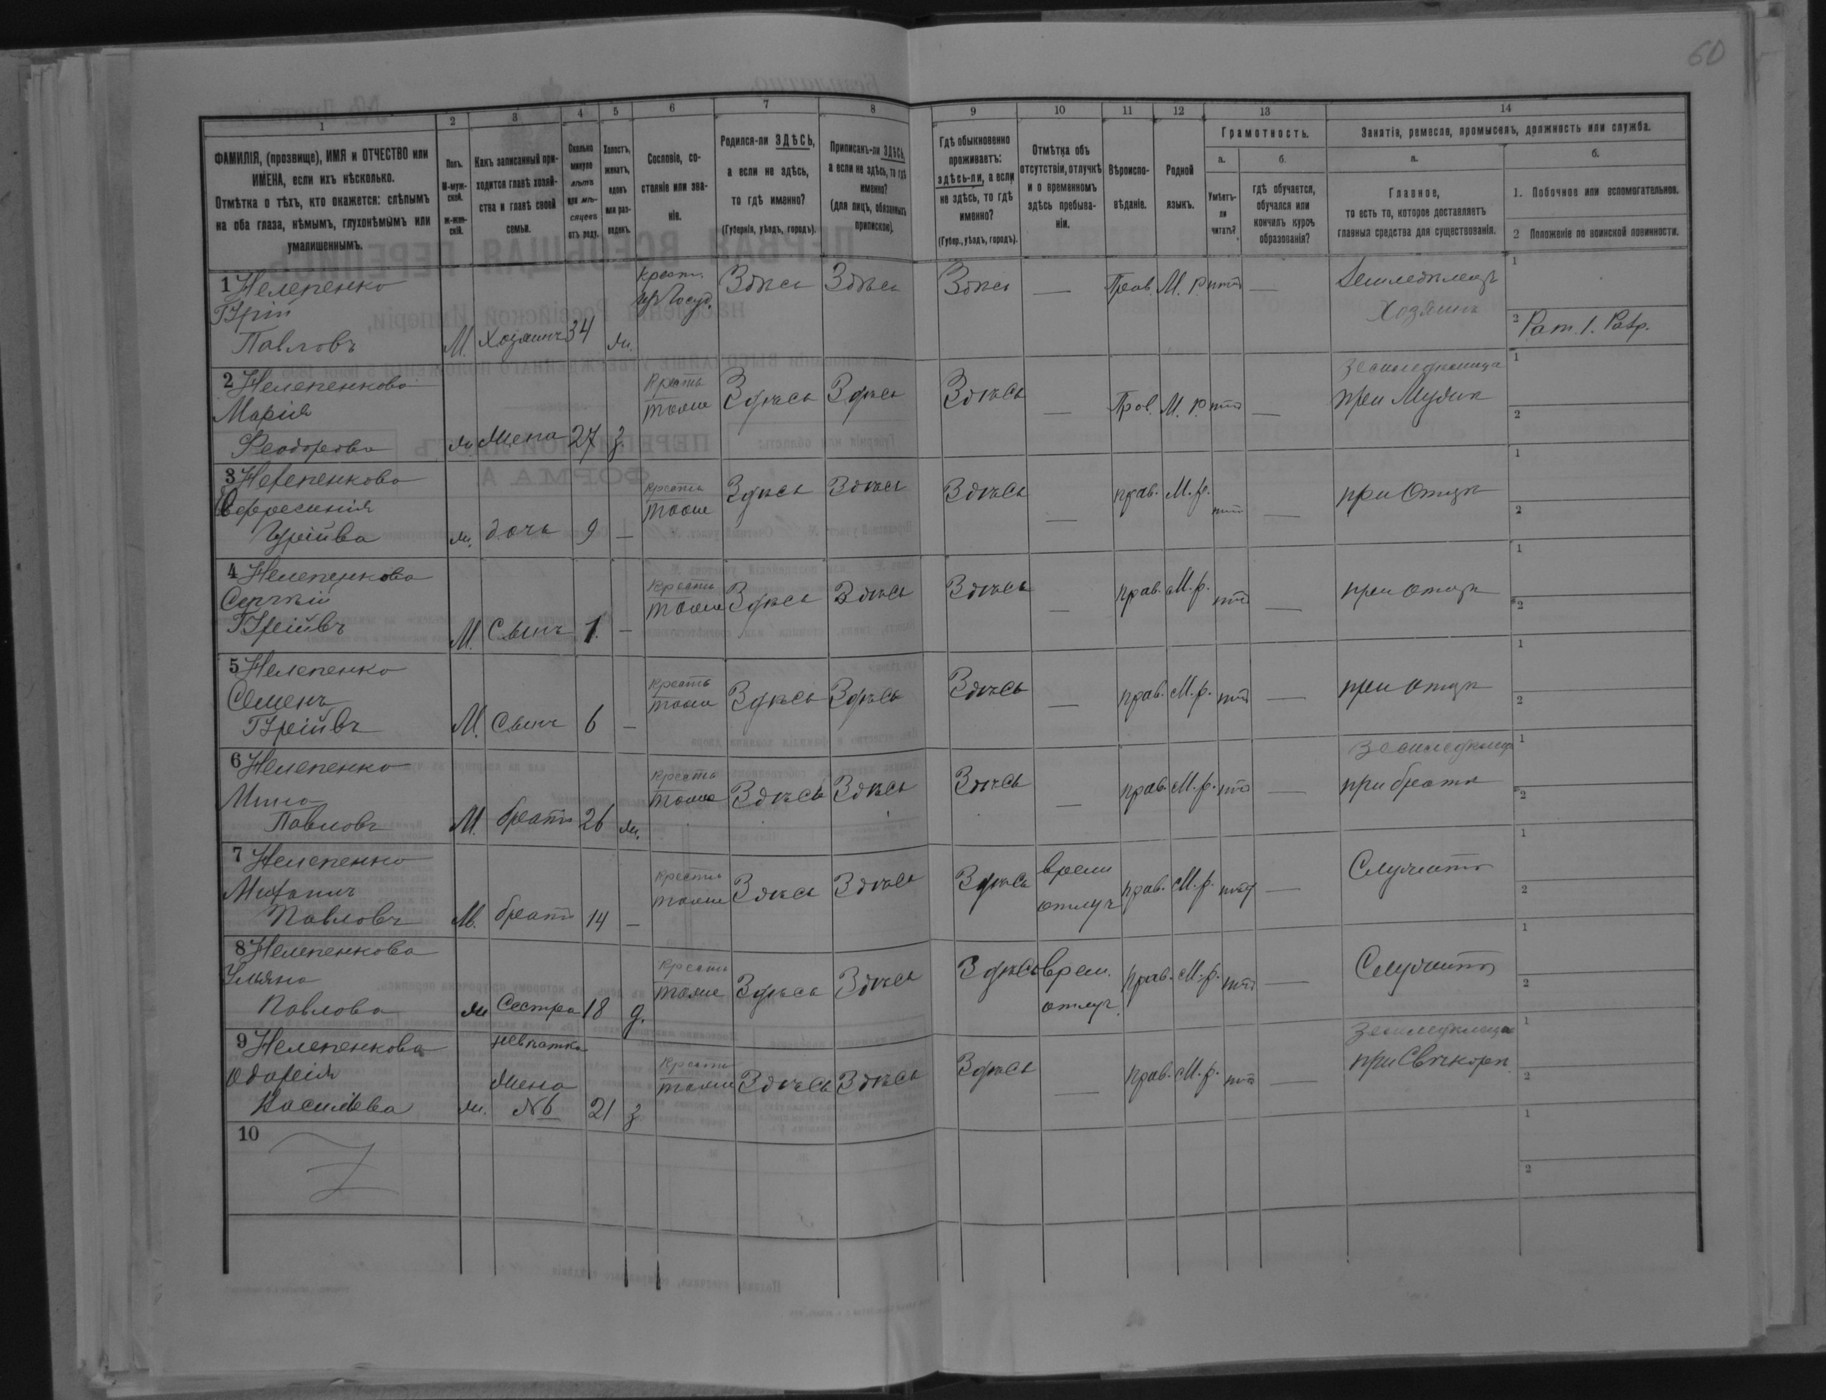 60
1
2
3
4
5
6
7
8
9
10
11
12
13
14
ФАМИЛІЯ, (прозвище), ИМЯ и ОТЧЕСТВО или
ИМЕНА, если ихъ нѣсколько.
Отмѣтка о тѣхъ, кто окажется: слѣпымъ
на оба глаза, нѣмымъ, глухонѣмымъ или
умалишеннымъ.
Полъ.
М-муж-
ской.
ж-жен-
скій.
Какъ записанный при-
ходится главѣ хозяй-
ства и главѣ своей
семьи.
Сколько
минуло
лѣтъ
или мѣ-
сяцевъ
отъ роду.
Холостъ,
женатъ,
вдовъ
или раз-
веденъ.
Сословіе, со-
стояніе или зва-
ніе.
Родился-ли ЗДѢСЬ,
а если не здѣсь,
то гдѣ именно?
(Губернія, уѣздъ, городъ).
Приписанъ-ли ЗДѢСЬ,
а если не здѣсь, то гдѣ
именно?
(для лицъ, обязанныхъ
припискою).
Гдѣ обыкновенно
проживаетъ:
здѣсь-ли, а если
не здѣсь, то гдѣ
именно?
(Губер., уѣздъ, городъ).
Отмѣтка объ
отсутствіи, отлучкѣ
и о временномъ
здѣсь пребыва-
ніи.
Вѣроиспо-
вѣданіе.
Родной
языкъ.
Грамотность.
а.
б.
Умѣетъ-
ли
читать?
гдѣ обучается,
обучался или
кончилъ курсъ
образованія?
Занятіе, ремесло, промыселъ, должность или служба.
а.
б.
Главное,
то есть то, которое доставляетъ
главныя средства для существованія.
1. Побочное или вспомогательное.
2 Положеніе по воинской повинности.
1 Нелепенко
Гурій
Павловъ
М. Хозяинъ 34 ж.
крест. изъ Госуд.
Здѣсь Здѣсь Здѣсь — Прав. М. р. нѣтъ —
Земледѣлецъ
Хозяинъ
1
2 Рат. 1. Разр.
2 Нелепенкова
Марія
Феодорова
ж. жена 27 з.
Крест. тоже
Здѣсь Здѣсь Здѣсь — Прав. М. р. нѣтъ —
земледѣлица
при Мужѣ
1
2
3 Нелепенкова
Ефросинія
Гурійва
ж. дочь 9 —
крест. тоже
Здѣсь Здѣсь Здѣсь — прав. М. р. нѣтъ —
при Отцѣ
1
2
4 Нелепенкова
Сергѣй
Гурійвъ
М. Сынъ 1. —
крест. тоже
Здѣсь Здѣсь Здѣсь — прав. М. р. нѣтъ —
при отцѣ
1
2
5 Нелепенко
Семенъ
Гурійвъ
М. Сынъ 6 —
крест. тоже
Здѣсь Здѣсь Здѣсь — прав. М. р. нѣтъ —
при отцѣ
1
2
6 Нелепенко
Мина
Павловъ
М. братъ 26 ж.
крест. тоже
Здѣсь Здѣсь Здѣсь — прав. М. р. нѣтъ —
земледѣлецъ
при братѣ
1
2
7 Нелепенко
Павловъ
М. братъ 14 —
крест. тоже
Здѣсь Здѣсь Здѣсь
врем отлуч
прав. М. р. нѣтъ —
Служитъ
1
2
8 Нелепенкова
Ульяна
Павлова
ж Сестра 18 д.
крест. тоже
Здѣсь Здѣсь Здѣсь
врем. отлуч.
прав. М. р. нѣтъ —
Служитъ
1
2
9 Нелепенкова
Одарія
Василіева
ж. невѣстка
жена
№6
21 з.
крест. тоже
Здѣсь Здѣсь Здѣсь — прав. М. р. нѣтъ —
земледѣлица
при Свѣкорѣ
1
2
10
1
2